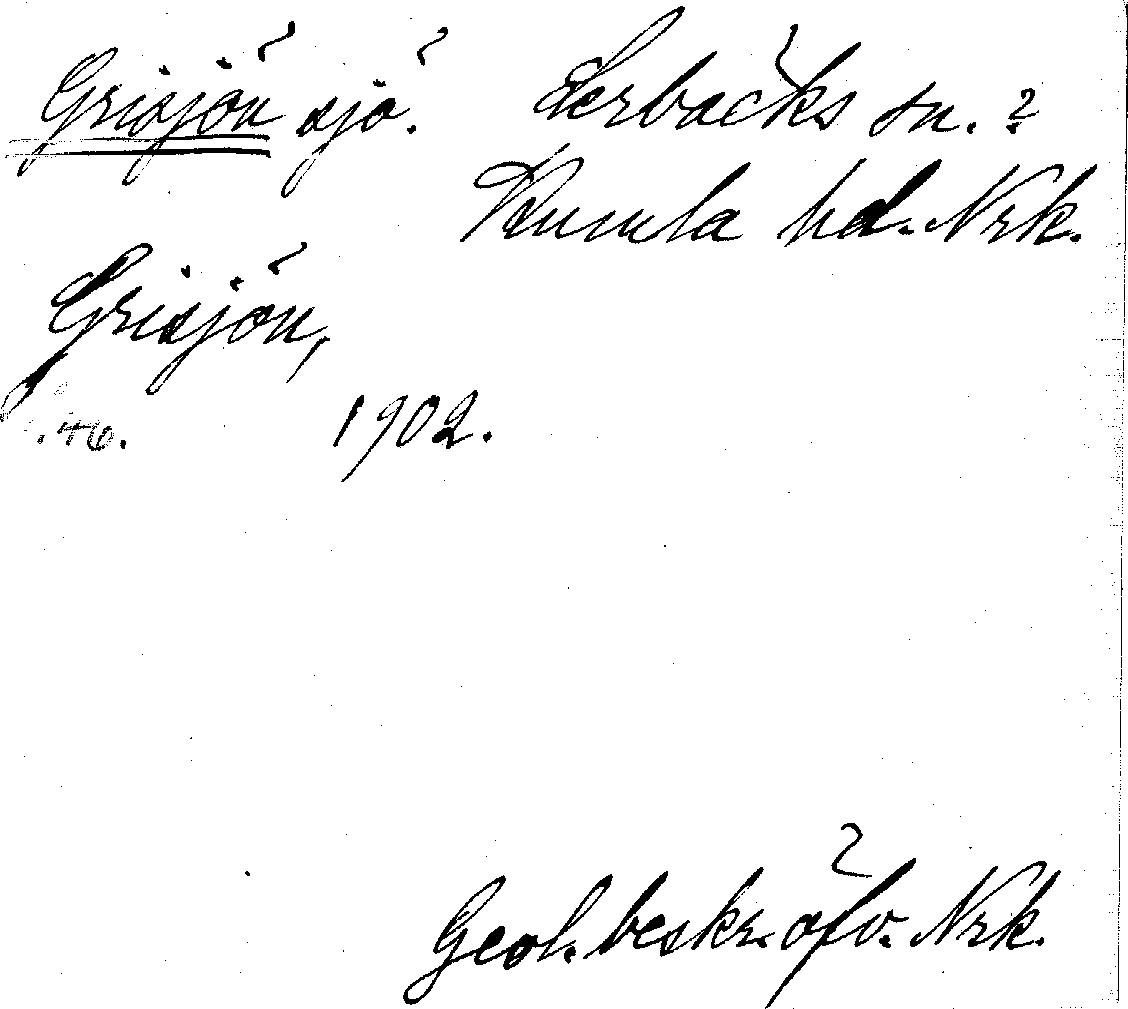 Grisjön sjö. Lerbäcks sn. ?
Kumla hd. Nrk.
Grisjön,
.46. 1902.
Geol. beskr. öfv. Nrk.